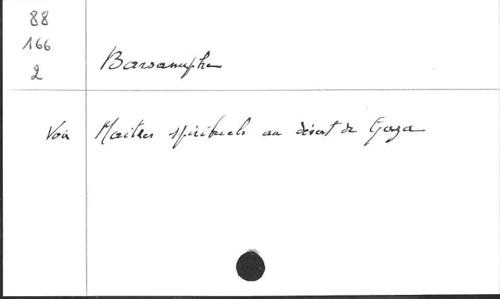 88
166
2
Barsanuphe
Voir Maîtres spirituels au désert de Gaza